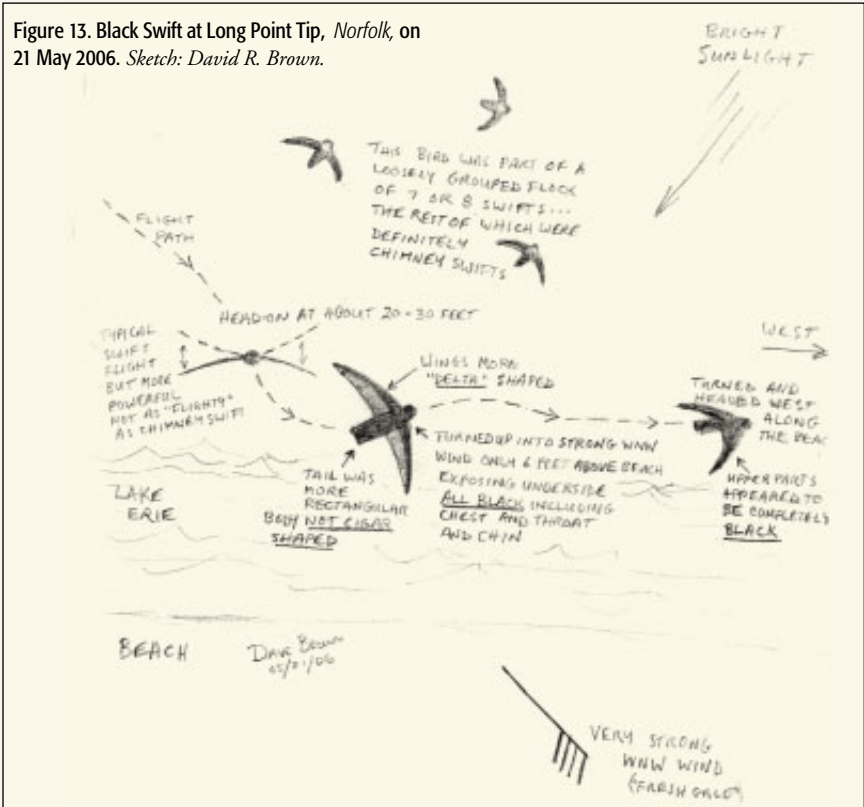 Figure 13. Black Swift at Long Point Tip, Norfolk, on
21 May 2006. Sketch: David R. Brown.
BRIGHT
SUNLIGHT
THIS BIRD WAS PART OF A
LOOSELY GROUPED FLOCK
OF 7 OR 8 SWIFTS...
THE REST OF WHICH WERE
DEFINITELY
CHIMNEY SWIFTS
FLIGHT
PATH
HEAD-ON AT ABOUT 20-30 FEET
TYPICAL
SWIFT
FLIGHT
BUT MORE
POWERFUL
NOT AS "FLIGHTY"
AS CHIMNEY SWIFT
WINGS MORE
"DELTA" SHAPED
WEST
TURNED AND
HEADED WEST
ALONG
THE BEAC
TURNED UP INTO STRONG WNW
WIND ONLY 6 FEET ABOVE BEACH
EXPOSING UNDERSIDE
ALL BLACK INCLUDING
CHEST AND THROAT
AND CHIN
TAIL WAS
MORE
RECTANGULAR
BODY NOT CIGAR
SHAPED
UPPER PARTS
APPEARED TO
BE COMPLETELY
BLACK
LAKE
ERIE
BEACH
Dave Brown
05/21/06
VERY STRONG
WNW WIND
("FRESH GALE")